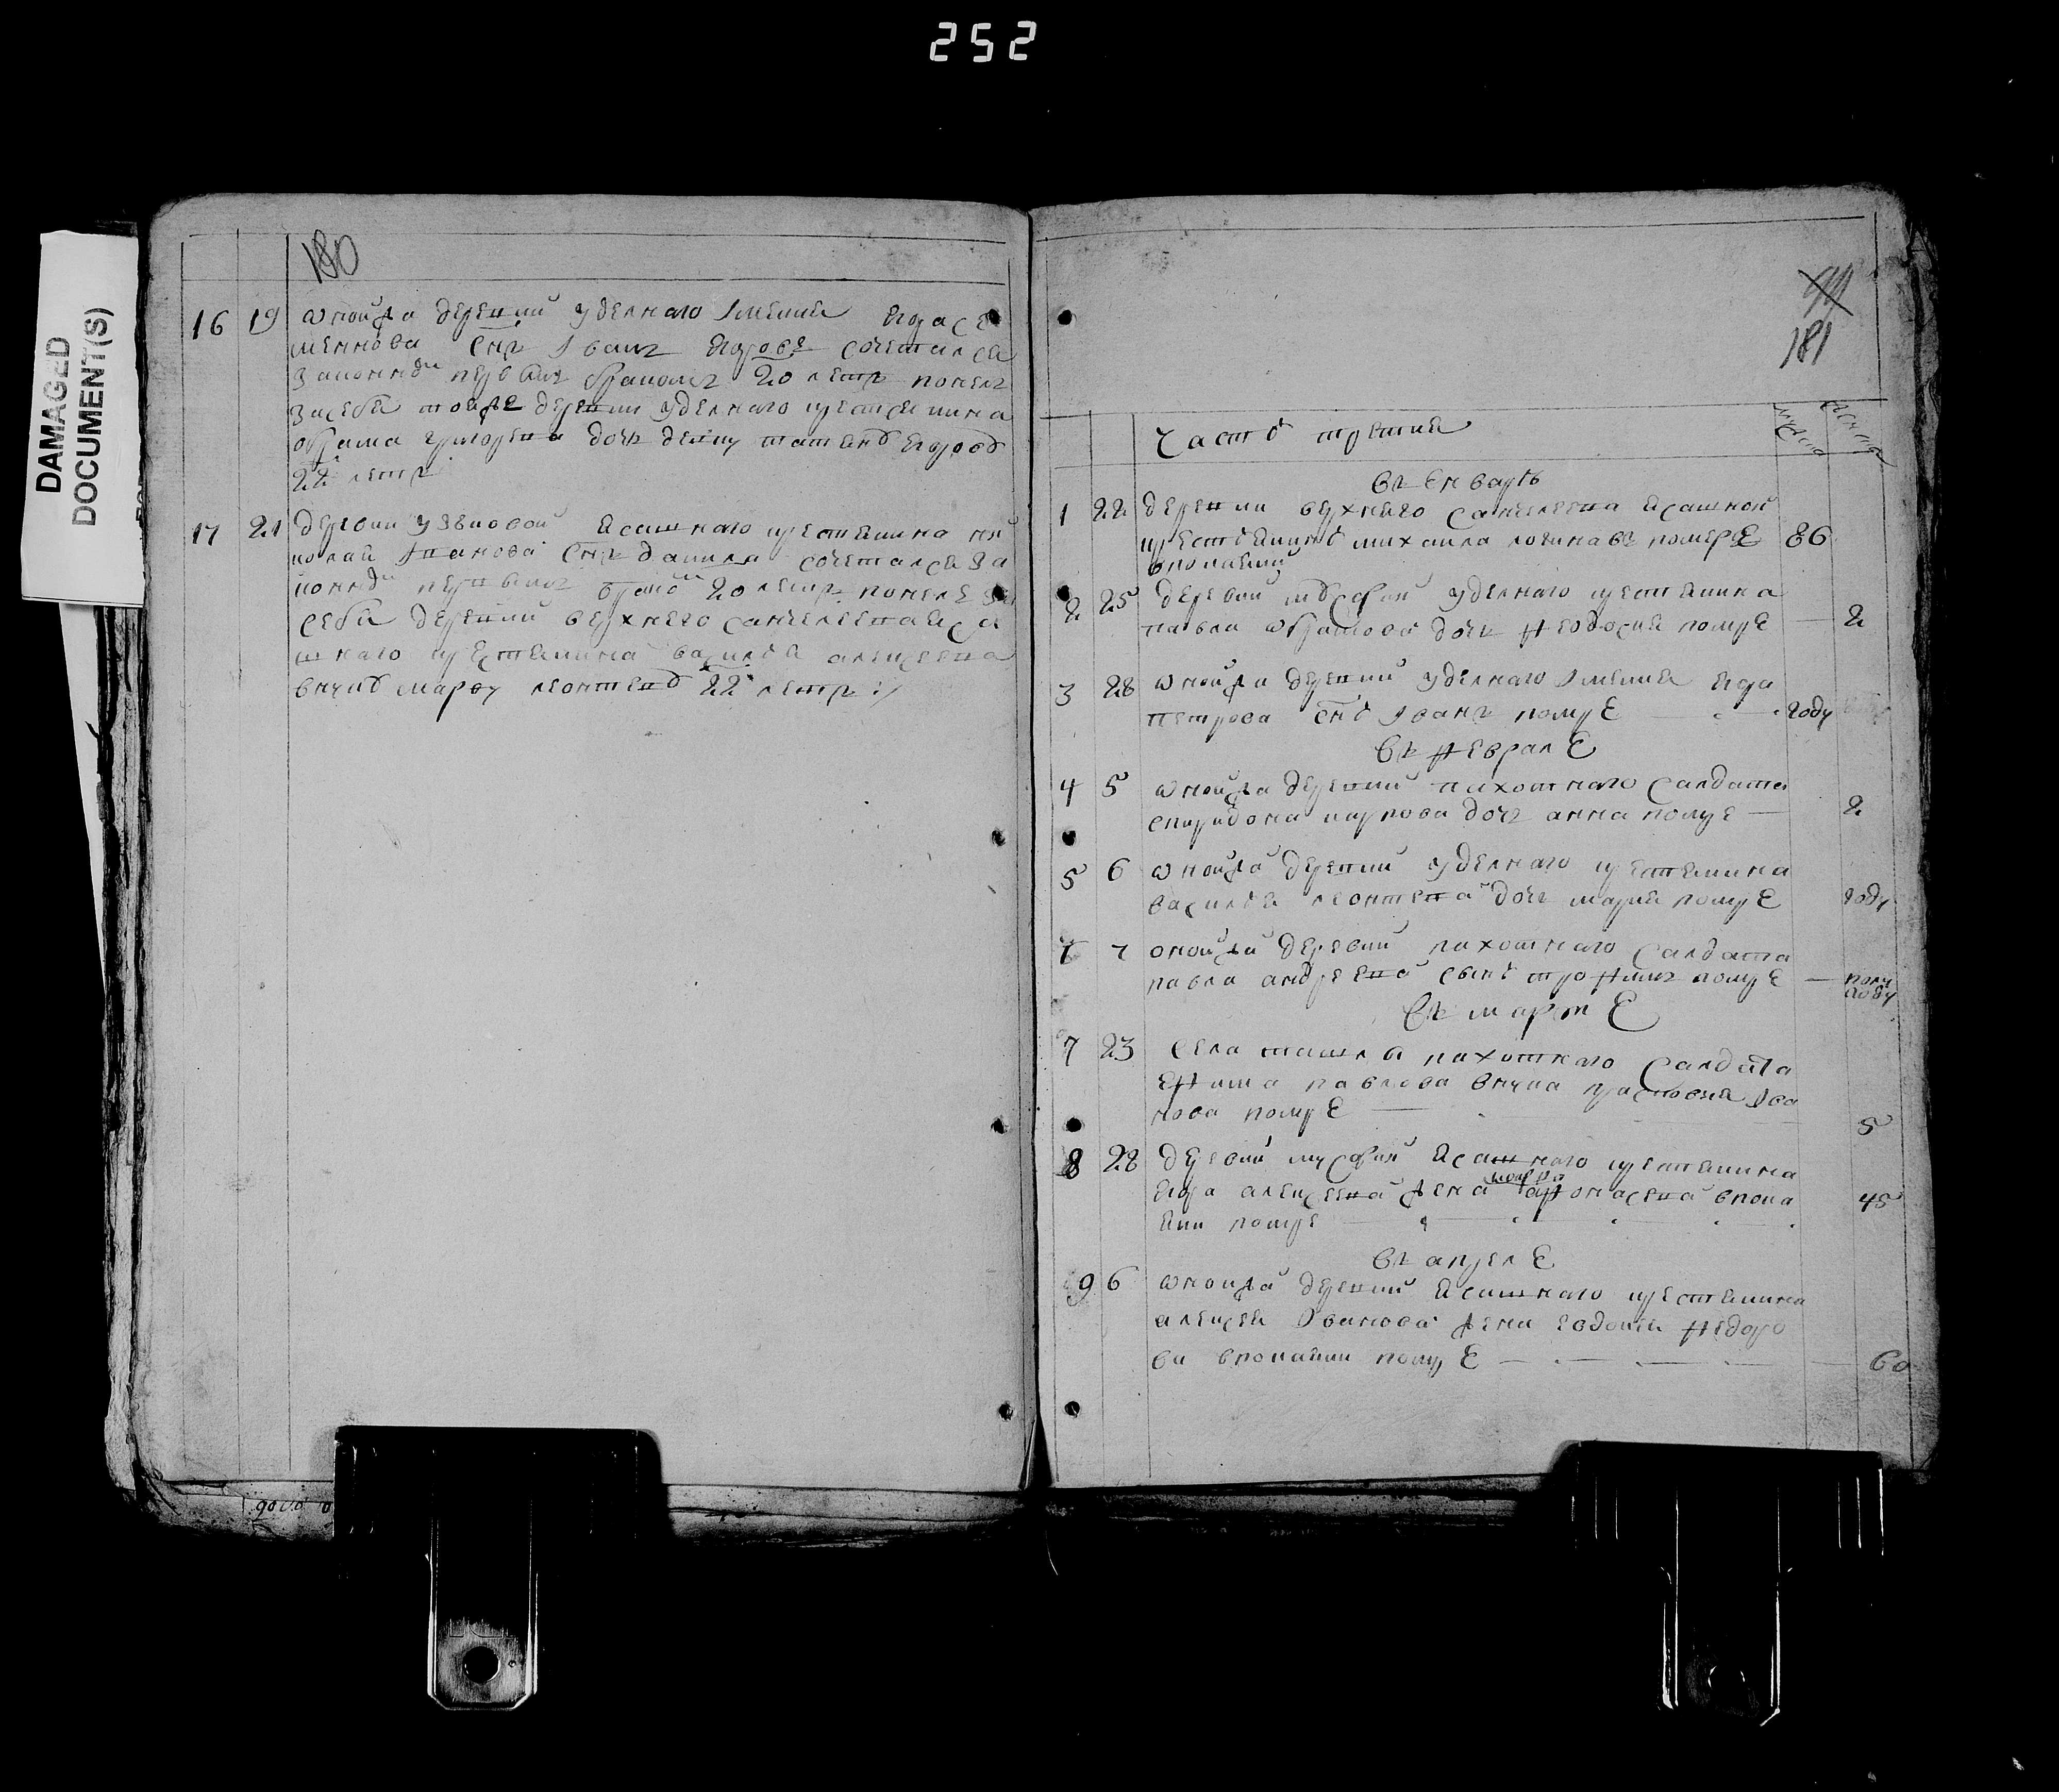 252
DAMAGED
DOCUMENT(S)
180
16 19 оной же деревни уделнаго имения Егора Се
менова снъ Иванъ Егоровъ сочетался
законнымъ первымъ бракомъ 20 летъ понелъ
за себя той же деревни уделнаго крестьянина
григорьева дочь девку Егорову
22 летъ
17 21 деревни Узековой ясашнаго крестьянина Ни
колая Иванова снъ данила сочетался за
коннымъ первымъ бракомъ 20 летъ понелъ за
себя деревни верхнего Санчелеева яса
шнаго крестьянина василья алексеева
внуку марфу леонтеву 22 летъ
181
Часть третия
въ Енваръ
1 22 деревни верхнего Санчелеева ясашной
крестьянинъ михаила логиновъ помере 86
впокаянии
2 25 деревни уделнаго крестьянина
павла дочь феодосия помре 2
3 28 оной же деревни уделнаго имения Егора
петрова снъ Иванъ помре году
въ феврале
4 5 оной же деревни пахотнаго салдата
спиридона карпова дочь анна помре 2
5 6 оной же деревни уделнаго крестьянина
василья леонтева дочь мария помре году
7 оной же деревни пахотнаго салдата
павла андреева сынъ трофимъ помре полу
году
въ марте
7 23 села ташлы пахотнаго салдата
Ефима павлова внука прасковия Ива
нова помре 5
8 28 деревни ясашнаго крестьянина
Егора алексеева жена марфа афонасева впока
янии помре 45
въ апреле
9 6 оной же деревни ясашнаго крестьянина
алексея Иванова жена евдокия федоро
ва впокаянии помре 60